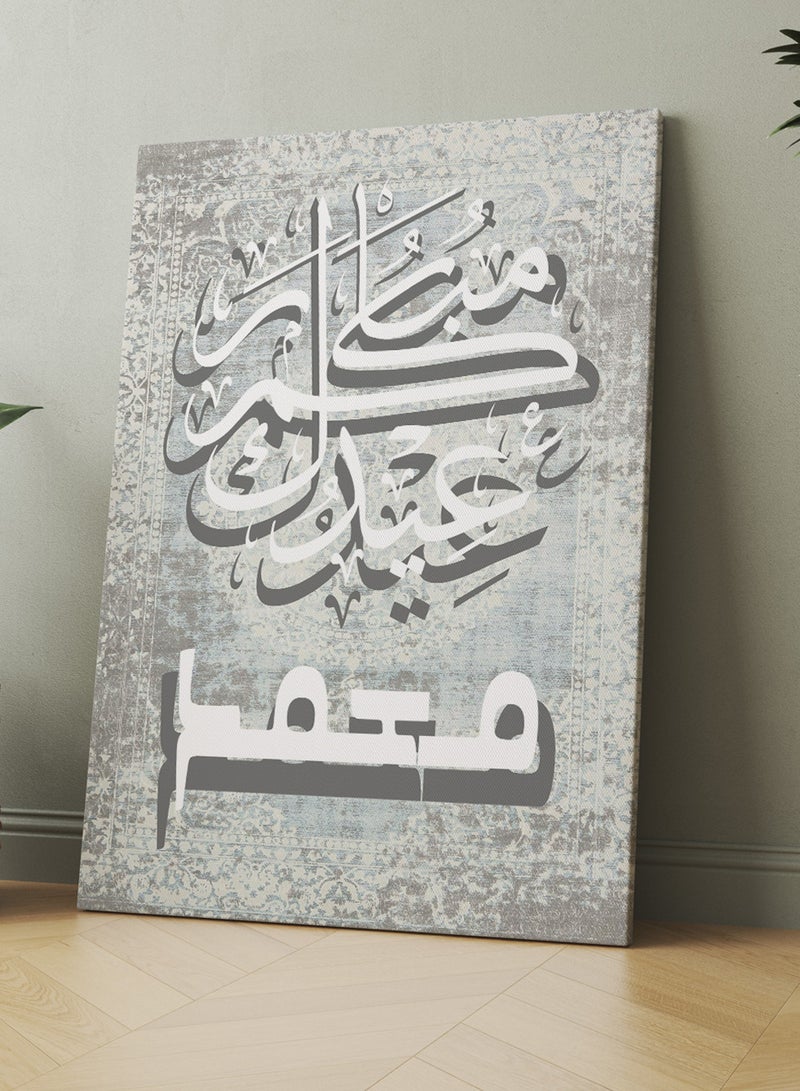 عيدكم مبارك
محمد